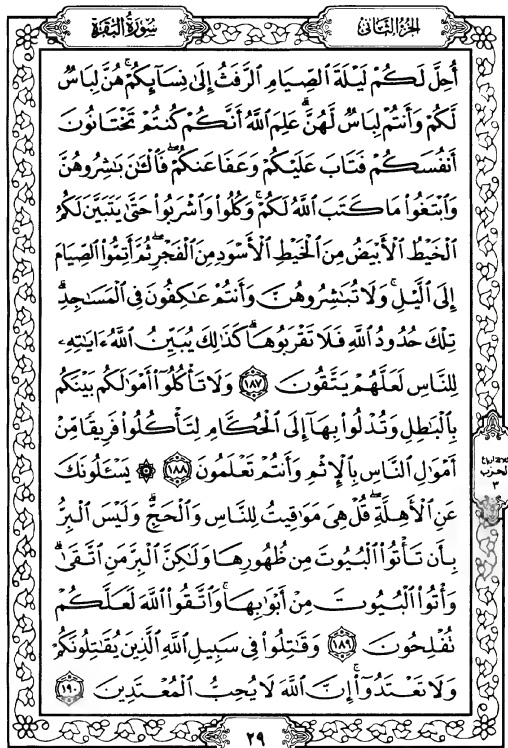 سُورَةُ البَقَرَةِ
الجُزْءُ الثَّانِي
أُحِلَّ لَكُمْ لَيْلَةَ ٱلصِّيَامِ ٱلرَّفَثُ إِلَىٰ نِسَآئِكُمْ ۚ هُنَّ لِبَاسٌ
لَّكُمْ وَأَنتُمْ لِبَاسٌ لَّهُنَّ ۗ عَلِمَ ٱللَّهُ أَنَّكُمْ كُنتُمْ تَخْتَانُونَ
أَنفُسَكُمْ فَتَابَ عَلَيْكُمْ وَعَفَا عَنكُمْ ۖ فَٱلْـَٰٔنَ بَـٰشِرُوهُنَّ
وَٱبْتَغُوا۟ مَا كَتَبَ ٱللَّهُ لَكُمْ ۚ وَكُلُوا۟ وَٱشْرَبُوا۟ حَتَّىٰ يَتَبَيَّنَ لَكُمُ
ٱلْخَيْطُ ٱلْأَبْيَضُ مِنَ ٱلْخَيْطِ ٱلْأَسْوَدِ مِنَ ٱلْفَجْرِ ۖ ثُمَّ أَتِمُّوا۟ ٱلصِّيَامَ
إِلَى ٱلَّيْلِ ۚ وَلَا تُبَـٰشِرُوهُنَّ وَأَنتُمْ عَـٰكِفُونَ فِى ٱلْمَسَـٰجِدِ ۗ
تِلْكَ حُدُودُ ٱللَّهِ فَلَا تَقْرَبُوهَا ۗ كَذَٰلِكَ يُبَيِّنُ ٱللَّهُ ءَايَـٰتِهِۦ
لِلنَّاسِ لَعَلَّهُمْ يَتَّقُونَ ١٨٧ وَلَا تَأْكُلُوٓا۟ أَمْوَٰلَكُم بَيْنَكُم
بِٱلْبَـٰطِلِ وَتُدْلُوا۟ بِهَآ إِلَى ٱلْحُكَّامِ لِتَأْكُلُوا۟ فَرِيقًا مِّنْ
أَمْوَٰلِ ٱلنَّاسِ بِٱلْإِثْمِ وَأَنتُمْ تَعْلَمُونَ ١٨٨ ۞ يَسْـَٔلُونَكَ
عَنِ ٱلْأَهِلَّةِ ۖ قُلْ هِىَ مَوَٰقِيتُ لِلنَّاسِ وَٱلْحَجِّ ۗ وَلَيْسَ ٱلْبِرُّ
بِأَن تَأْتُوا۟ ٱلْبُيُوتَ مِن ظُهُورِهَا وَلَـٰكِنَّ ٱلْبِرَّ مَنِ ٱتَّقَىٰ ۗ
وَأْتُوا۟ ٱلْبُيُوتَ مِنْ أَبْوَٰبِهَا ۚ وَٱتَّقُوا۟ ٱللَّهَ لَعَلَّكُمْ
تُفْلِحُونَ ١٨٩ وَقَـٰتِلُوا۟ فِى سَبِيلِ ٱللَّهِ ٱلَّذِينَ يُقَـٰتِلُونَكُمْ
وَلَا تَعْتَدُوٓا۟ ۚ إِنَّ ٱللَّهَ لَا يُحِبُّ ٱلْمُعْتَدِينَ ١٩٠
الحزب
٣
٢٩